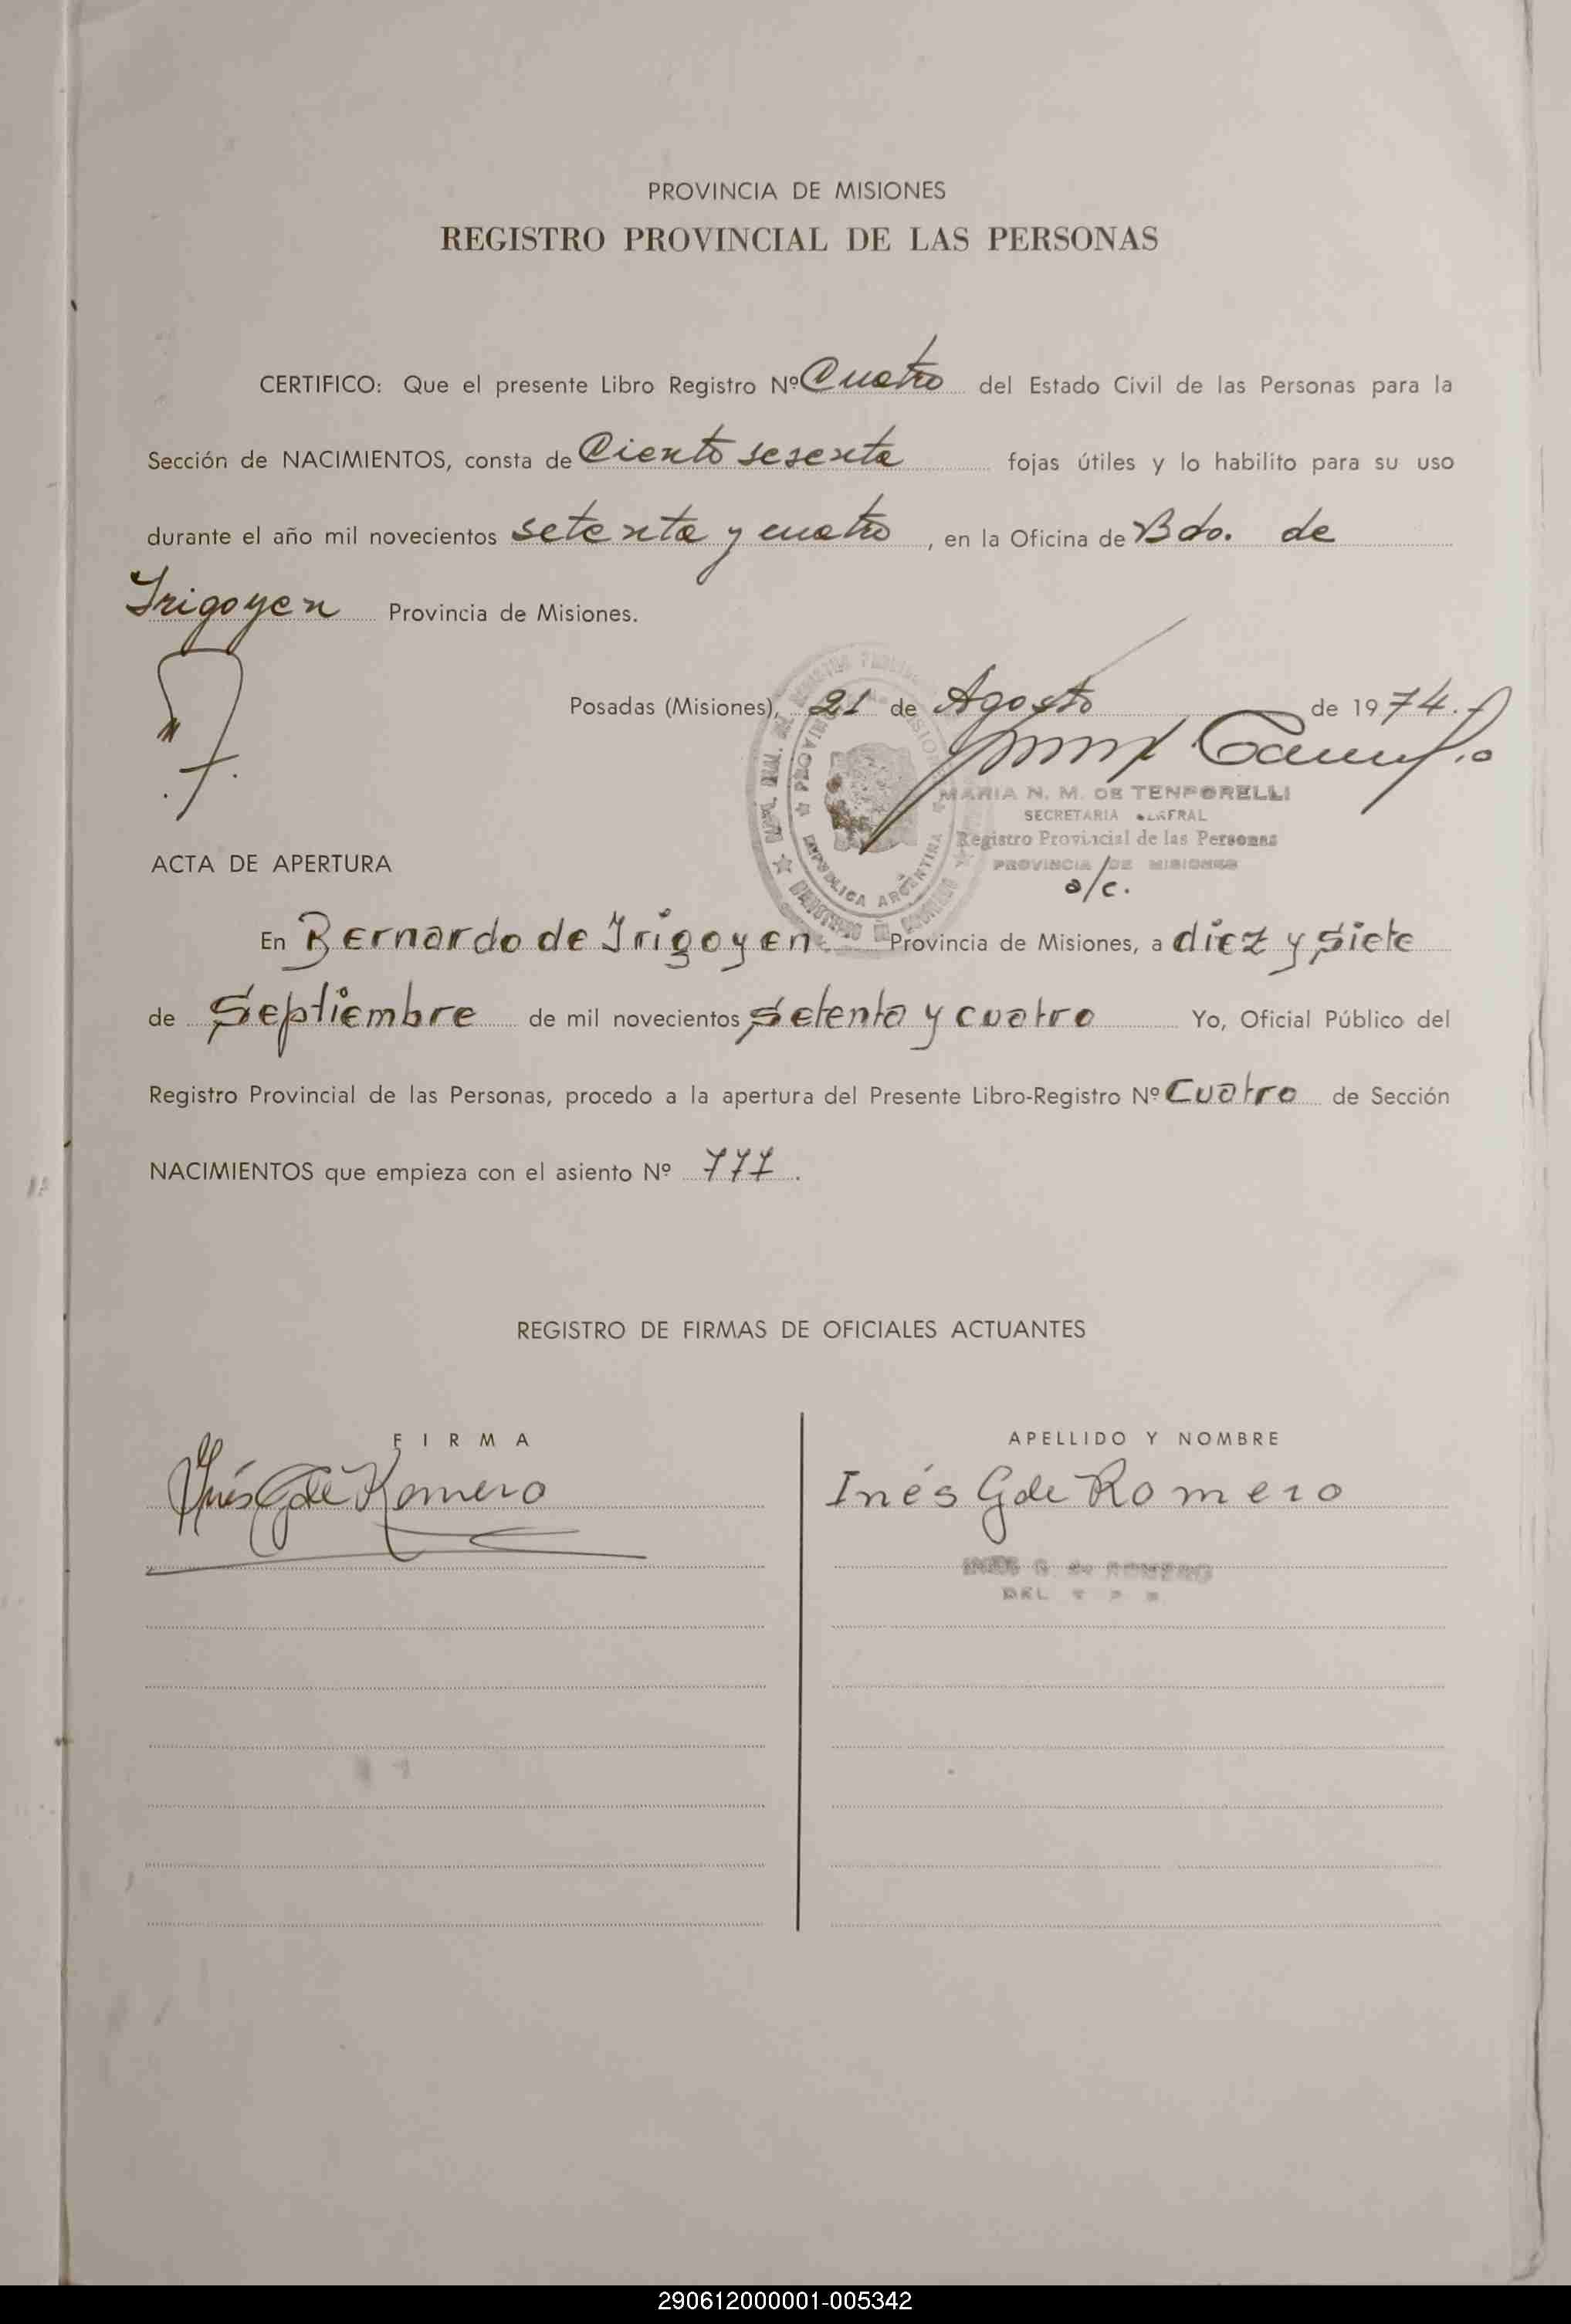 PROVINCIA DE MISIONES
REGISTRO PROVINCIAL DE LAS PERSONAS
CERTIFICO: Que el presente Libro Registro Nº Cuatro del Estado Civil de las Personas para la
Sección de NACIMIENTOS, consta de Ciento sesenta fojas útiles y lo habilito para su uso
durante el año mil novecientos setenta y cuatro, en la Oficina de Bdo. de
Irigoyen Provincia de Misiones.
Posadas (Misiones), 21 de Agosto de 1974.
MARIA N. M. DE TENPORELLI
SECRETARIA
Registro Provincial de las Personas
PROVINCIA DE MISIONES
a/c.
REPUBLICA ARGENTINA
ACTA DE APERTURA
En Bernardo de Irigoyen Provincia de Misiones, a diez y siete
de Septiembre de mil novecientos setenta y cuatro Yo, Oficial Público del
Registro Provincial de las Personas, procedo a la apertura del Presente Libro-Registro Nº Cuatro de Sección
NACIMIENTOS que empieza con el asiento Nº 777.
REGISTRO DE FIRMAS DE OFICIALES ACTUANTES
FIRMA APELLIDO Y NOMBRE
Inés G de Romero Inés G de Romero
G. de ROMERO
290612000001-005342